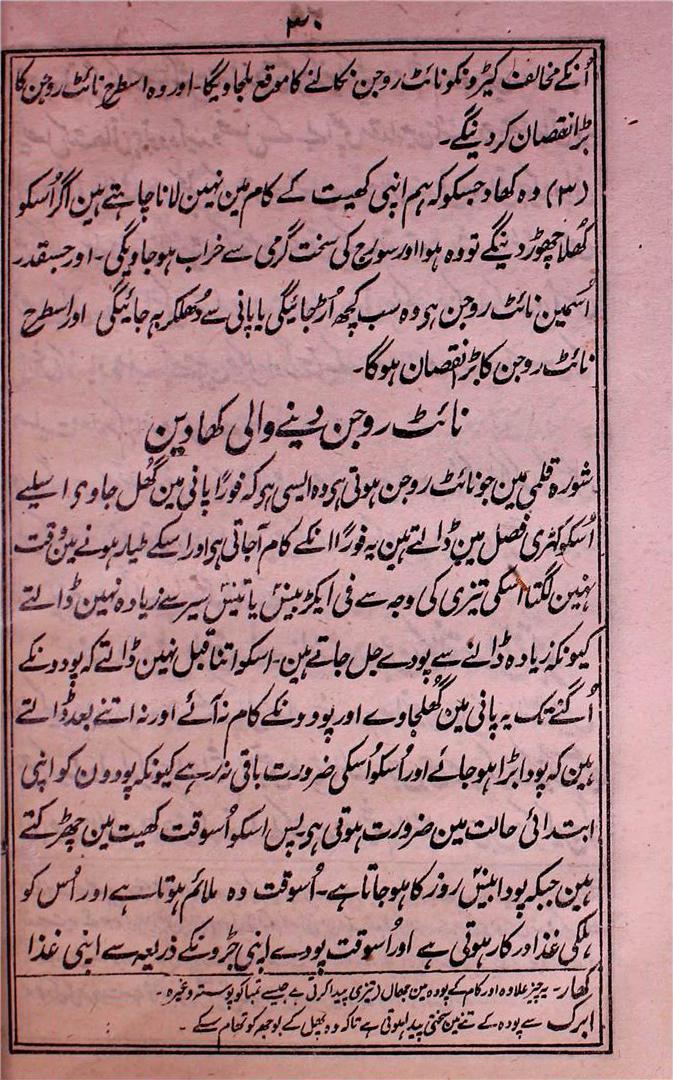 ۳۰
اُنکے مخالف کیڑونکو نائٹ روجن نکالنے کا موقع ملجاویگا۔ اور وہ اسطرح نائٹ روجن کا
بڑا نقصان کردینگے۔
(۳) وہ کھاد جسکو کہ ہم اپنی کھیت کے کام مین نہین لانا چاہتے ہین اگر اُسکو
کھُلا چھوڑ دینگے تو وہ ہوا اور سورج کی سخت گرمی سے خراب ہوجاویگی۔ اور جسقدر
اُسمین نائٹ روجن ہی وہ سب کچھ اُڑجائیگی یا پانی سے دُھلکر بہ جائیگی اور اسطرح
نائٹ روجن کا بڑا نقصان ہوگا۔
نائٹ روجن دینے والی کھادین
شورہ قلمی مین جو نائٹ روجن ہوتی ہی وہ ایسی ہی کہ فوراً پانی مین گھُل جاوی اسلیے
اُسکو کھڑی فصل مین ڈالتے ہین یہ فوراً انکے کام آجاتی ہی اور اسکے طیار ہونے مین وقت
نہین لگتا اسکی تیزی کی وجہ سے فی ایکڑ بیس یا تیس سیر سے زیادہ نہین ڈالتے
کیونکہ زیادہ ڈالنے سے پودے جل جاتے ہین۔ اسکو اتنا قبل نہین ڈالتے کہ پودونکے
اُگنے تک یہ پانی مین گھُلجاوے اور پودونکے کام نہ آئے اور نہ اتنے بعد ڈالتے
ہین کہ پودا بڑا ہوجائے اور اُسکو اُسکی ضرورت باقی نہ رہے کیونکہ پودون کو اپنی
ابتدائی حالت مین ضرورت ہوتی ہی پس اسکو اُسوقت کھیت مین چھڑکتے
ہین جبکہ پودا بیس روز کا ہوجاتا ہے۔ اُسوقت وہ ملائم ہوتا ہے اور اُس کو
ہلکی غذا درکار ہوتی ہے اور اُسوقت پودے اپنی جڑونکے ذریعہ سے اپنی غذا
کھار۔ یہ چیز علاوہ اور کام کے پودہ مین جھال (تیزی) پیدا کرتی ہے جیسے تمباکو پوستہ وغیرہ۔
ابرک سے پودہ کے تنے مین سختی پیدا ہوتی ہے تاکہ وہ پھل کے بوجھ کو تھام سکے۔